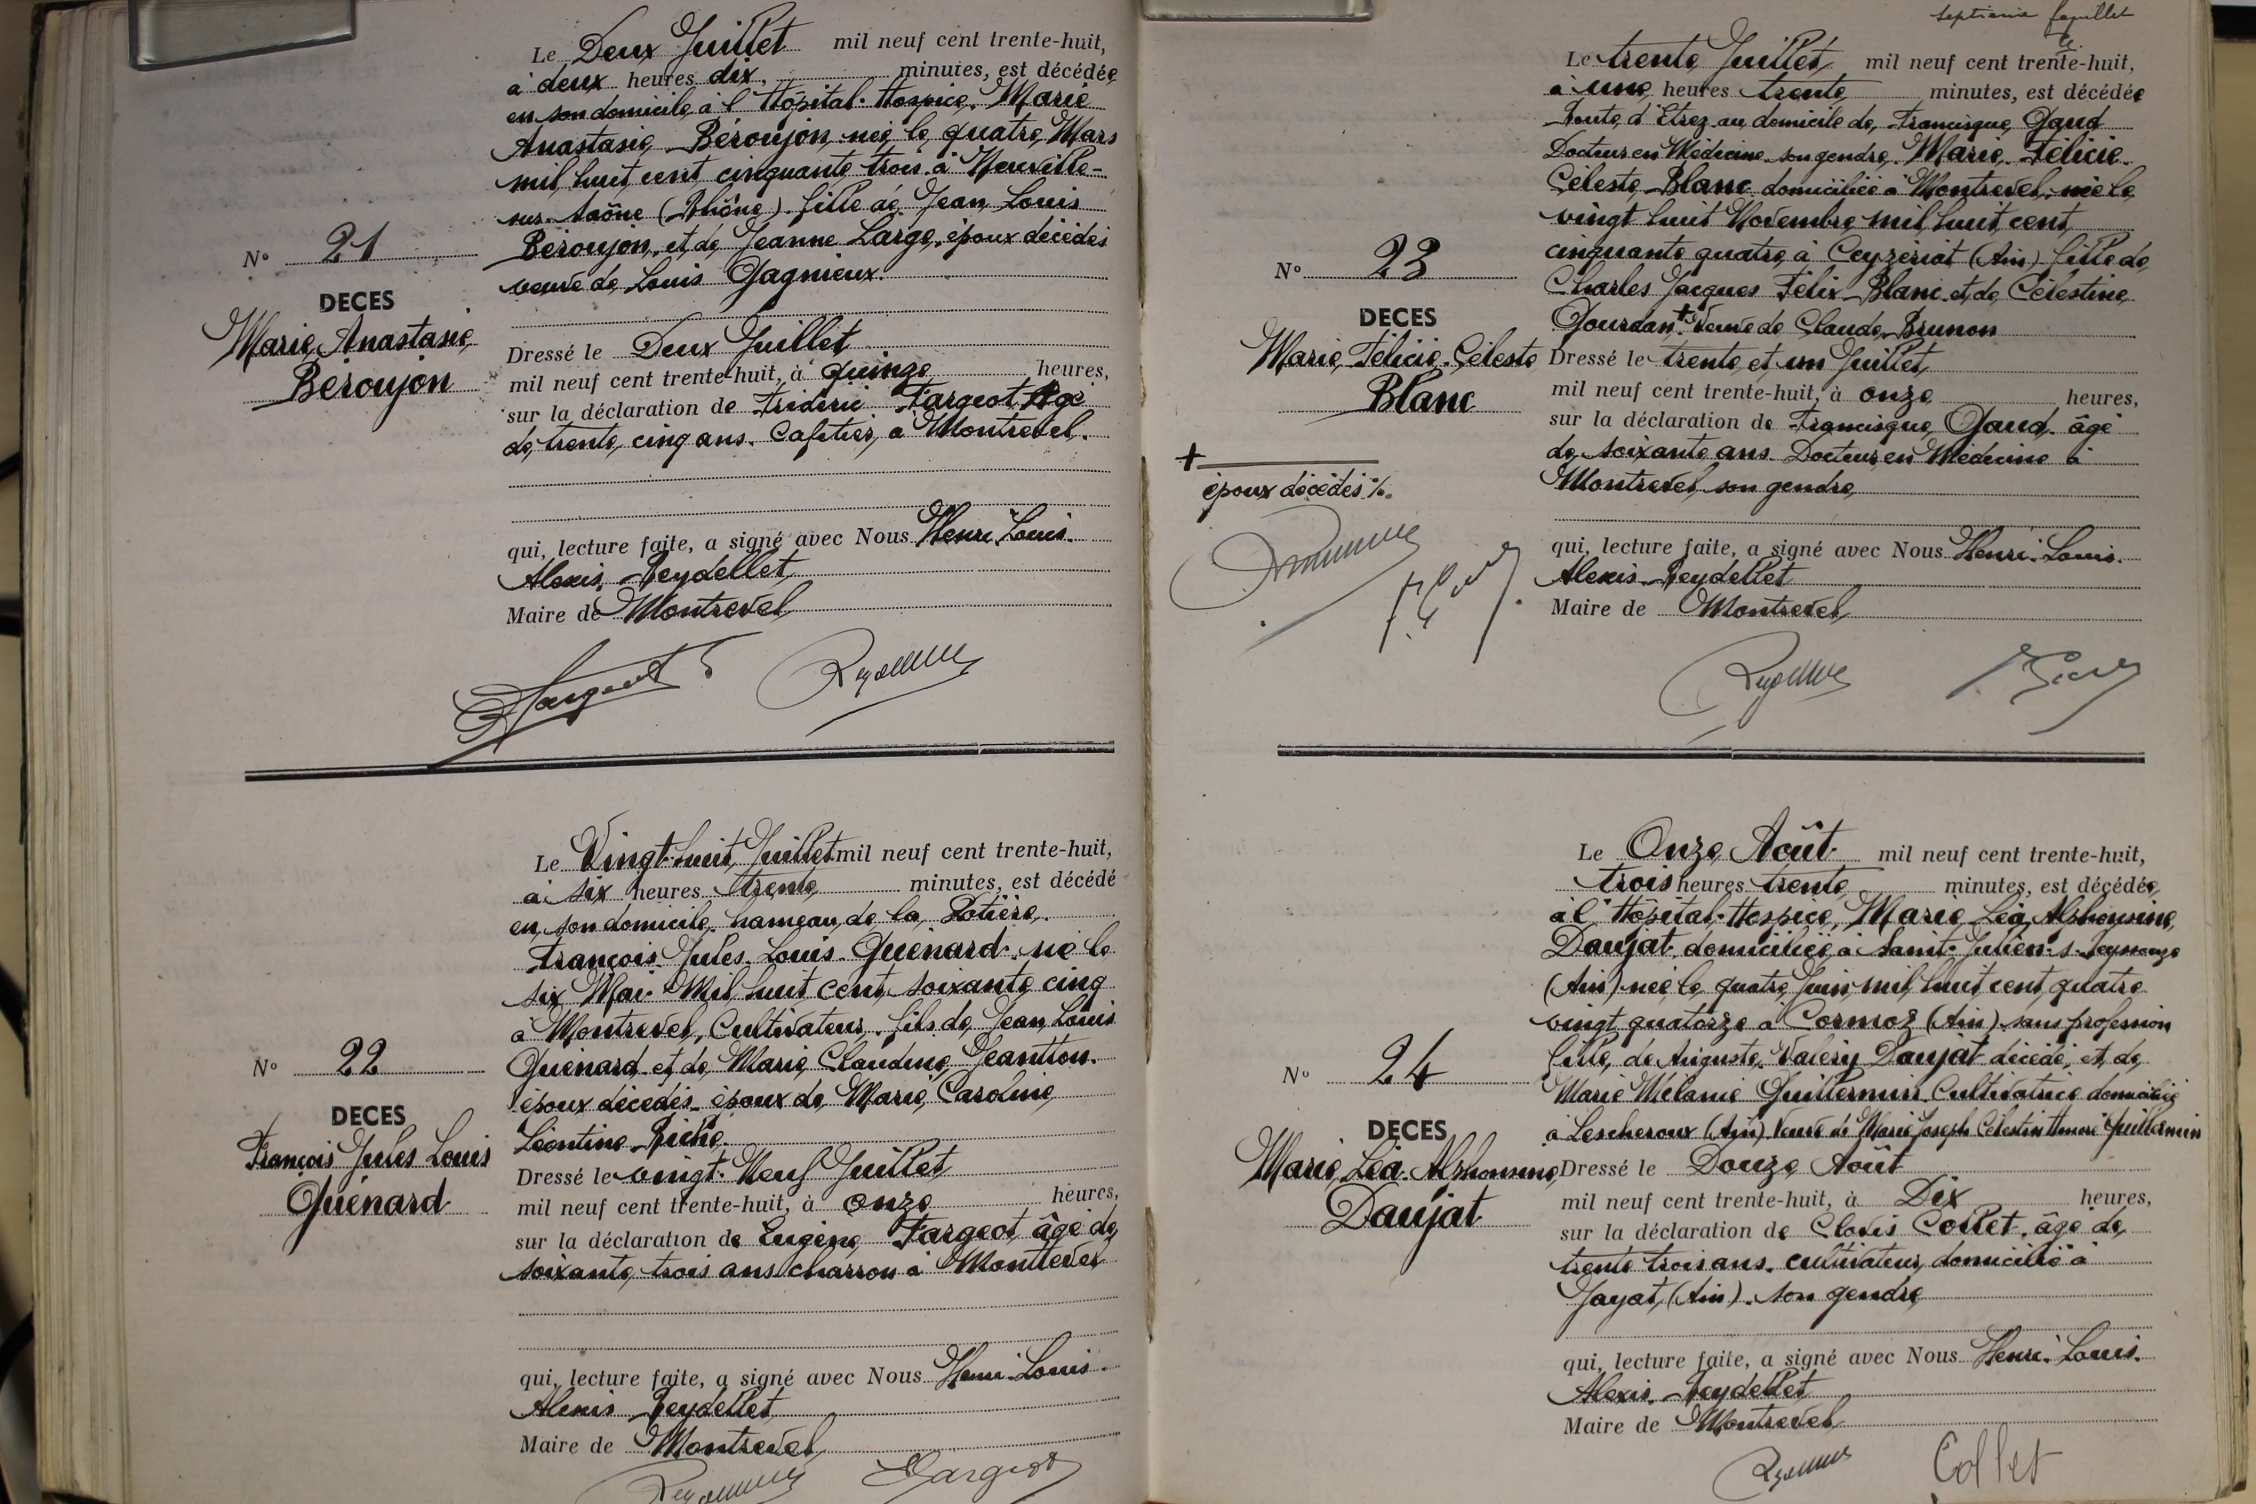 Le Deux Juillet mil neuf cent trente-huit,
à deux heures dix. minutes, est décédée
en son domicile à l'Hôpital-Hospice. Marie
Anastasie Béroujon née le quatre Mars
mil huit cent cinquante trois à Neuville-
sur-Saône (Rhône) fille de Jean Louis
Béroujon et de Jeanne Large, époux décédés
veuve de Louis Gagnieux.
N° 21
DECES
Marie Anastasie
Béroujon
Dressé le Deux Juillet
mil neuf cent trente-huit, à quinze heures,
sur la déclaration de Frédéric Fargeot Agé
de trente cinq ans. Cafetier, à Montrevel.
qui, lecture faite, a signé avec Nous Henri Louis
Alexis Peydellet
Maire de Montrevel
Le Vingt-huit Juillet mil neuf cent trente-huit,
à six heures trente minutes, est décédé
en son domicile hameau de la Potière.
François Jules Louis Quénard né le
six Mai Mil huit cent soixante cinq
à Montrevel, Cultivateur fils de Jean Louis
Quénard et de Marie Claudine Jeantton.
époux décédés époux de Marie Caroline
Léontine Piché.
N° 22
DECES
François Jules Louis
Quénard
Dressé le vingt-Neuf Juillet
mil neuf cent trente-huit, à onze heures,
sur la déclaration de Eugène Fargeot âgé de
soixante trois ans charron à Montrevel
qui, lecture faite, a signé avec Nous Henri Louis
Alexis Peydellet
Maire de Montrevel
septième feuillet
Le trente Juillet mil neuf cent trente-huit,
à une heures trente minutes, est décédée
Route d'Etrez au domicile de Francisque Gaud
Docteur en Médecine son gendre. Marie Félicie
Céleste Blanc domiciliée à Montrevel née le
vingt huit Novembre mil huit cent
cinquante quatre à Ceyzériat (Ain) fille de
Charles Jacques Félix Blanc et de Célestine
Gourdan + Veuve de Claude Brunon
N° 23
DECES
Marie Félicie Céleste
Blanc
Dressé le trente et un Juillet
mil neuf cent trente-huit, à onze heures,
sur la déclaration de Francisque Gaud âgé
de soixante ans Docteur en Médecine à
Montrevel son gendre
+
époux décédés %.
qui, lecture faite, a signé avec Nous Henri Louis
Alexis Peydellet
Maire de Montrevel
Le Onze Août mil neuf cent trente-huit,
trois heures trente minutes, est décédée
à l'Hôpital-Hospice, Marie Léa Alphonsine
Daujat domiciliée à Saint-Julien-s-Reyssouze
(Ain) née le quatre Juin mil huit cent quatre
vingt quatorze à Cormoz (Ain) sans profession
fille de Auguste Valéry Daujat décédé et de
Marie Mélanie Guillermin Cultivatrice domiciliée
à Lescheroux (Ain) Veuve de Marie Joseph Célestin Honoré Guillermin
N° 24
DECES
Marie Léa Alphonsine
Daujat
Dressé le Douze Août
mil neuf cent trente-huit, à Dix heures,
sur la déclaration de Clovis Collet âgé de
trente trois ans cultivateur domicilié à
Jayat (Ain) son gendre
qui, lecture faite, a signé avec Nous Henri Louis
Alexis Peydellet
Maire de Montrevel
Collet